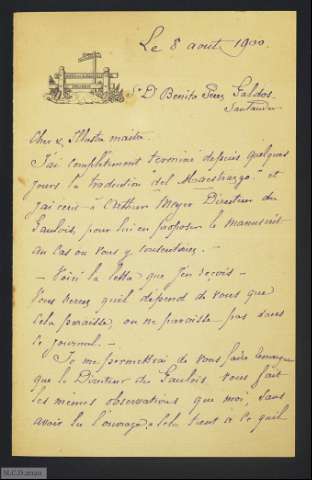 Le 8 août 1900.
Sr D Benito Perez Galdos.
Santander
Cher & Illustre maître.
J'ai complètement terminé depuis quelques
jours la traduction "del Maestrazgo" et
j'ai écrit à Arthur Meyer Directeur du
Gaulois, pour lui en proposer le manuscrit
au cas ou vous y consentiriez. —
— Voici la lettre que j'en reçois —
Vous verrez qu'il dépend de vous que
cela paraisse, ou ne paraisse pas dans
le journal. —
Je me permettrai de vous faire remarquer
que le Directeur du Gaulois vous fait
les mêmes observations que moi, sans
avoir lu l'ouvrage, cela tient à ce qu'il